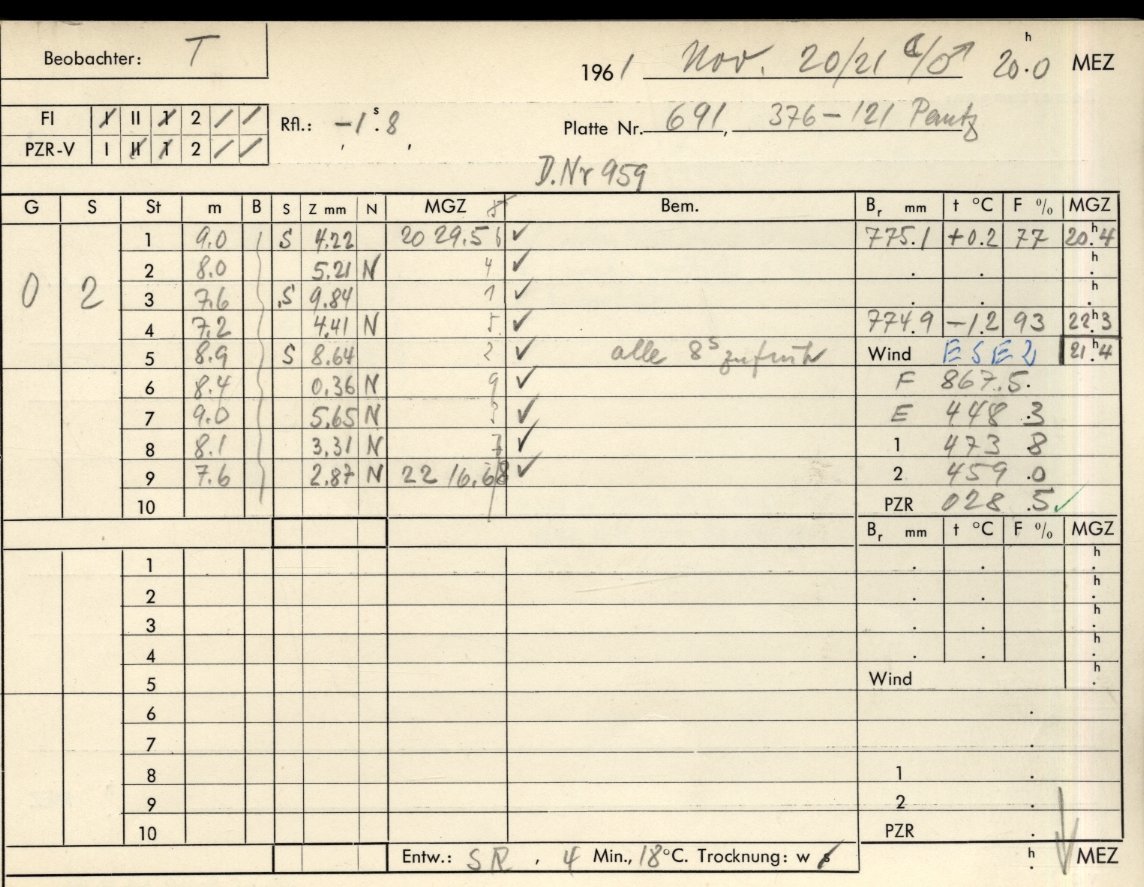 Beobachter: T
1961 Nov. 20/21 ☾/♂ 20.0 h MEZ
FI I II 1 2 / /
PZR-V I II 1 2 / /
Rfl.: -1.s8
Platte Nr. 691, 376-121 Pautz
D.Nr 959
G S St m B S Z mm N MGZ Bem. Br mm t °C F % MGZ
1 9.0 S 4.22 20 29.5 6 ✓ 775.1 +0.2 77 20.h4
2 8.0 5.21 N 4 ✓ . . h.
0 2 3 7.6 S 9.84 1 ✓ . . h.
4 7.2 4.41 N 5 ✓ 774.9 -1.2 93 22.h3
5 8.9 S 8.64 2 ✓ alle 8s zu früh Wind ESE 2 21.h4
6 8.4 0.36 N 9 ✓ F 867.5.
7 9.0 5.65 N ✓ E 448.3
8 8.1 3.31 N 7 ✓ 1 473 8
9 7.6 2.87 N 22 16.6 8 ✓ 2 459.0
10 PZR 028.5 ✓
Br mm t °C F % MGZ
1 . . h.
2 . . h.
3 . . h.
4 . . h.
5 Wind h.
6 .
7 .
8 1 .
9 2 .
10 PZR .
Entw.: SR, 4 Min., 18°C. Trocknung: w s h. MEZ